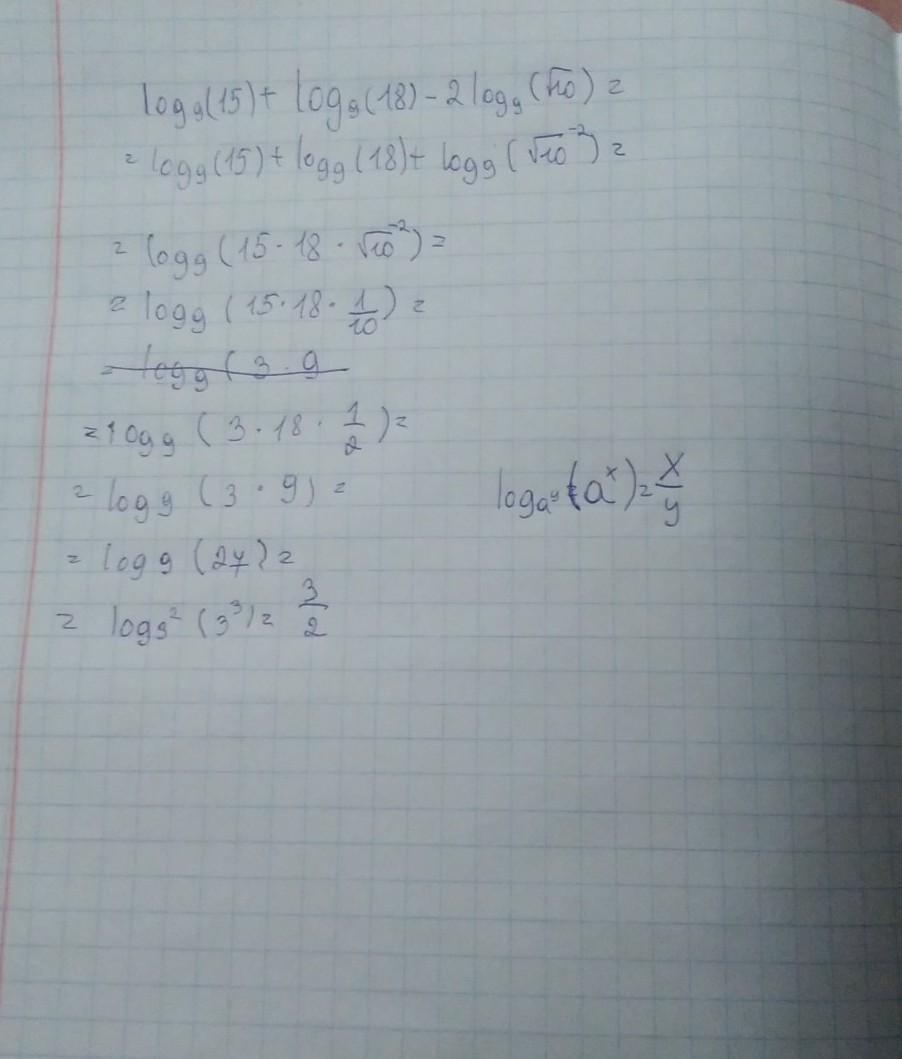 log₉(15) + log₉(18) - 2log₉(√10) =
= log₉(15) + log₉(18) + log₉(√10⁻²) =
= log₉(15·18·√10⁻²) =
= log₉(15·18·1/10) =
= log₉(3·9
= log₉(3·18·1/2) =
= log₉(3·9) =
log_{a^y}(a^x) = x/y
= log₉(27) =
= log₃²(3³) = 3/2